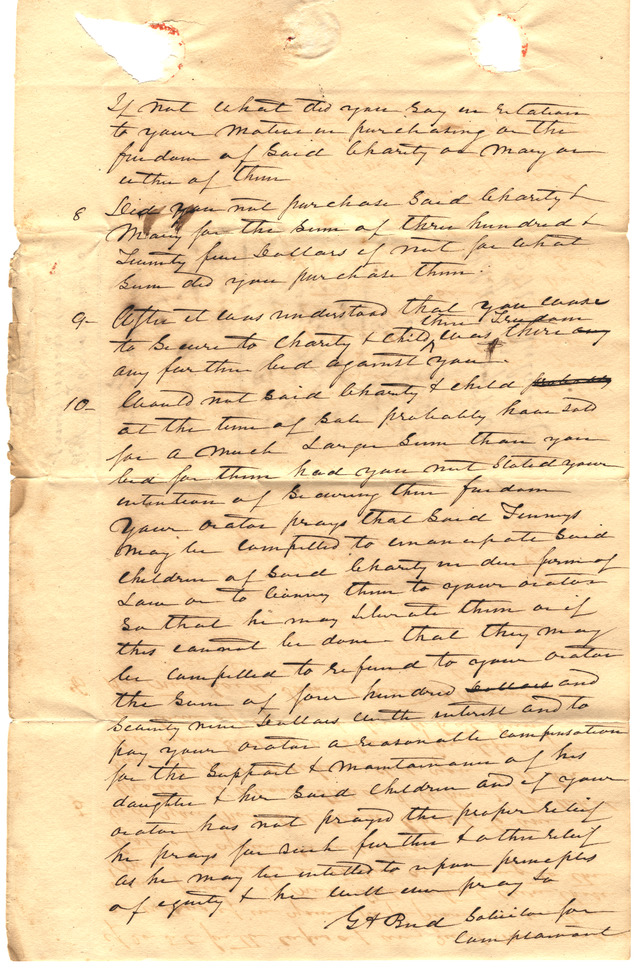 If not what did you say in relation
to your motive in purchasing or the
freedom of said Charity or Mary or
either of them
8 Did you not purchase said Charity &
Mary for the sum of three hundred &
Twenty five Dollars if not for what
sum did you purchase them.
9- After it was understood that you were
to secure to Charity & child their Freedom was there any
any further bid against you.
10- Would not said Charity & child probably
at the time of sale probably have sold
for a much Larger sum than you
bid for them had you not stated your
intention of securing their freedom
Your orator prays that said
may be compelled to emancipate said
children of said Charity in due form of
Law or to Convey them to your orator
so that he may liberate them or if
this cannot be done that they may
be compelled to refund to your orator
the sum of four hundred Dollars and
Seventy nine Dollars with interest and to
pay your orator a reasonable compensation
for the support & maintainance of his
daughter & her said children and if your
orator has not prayed the proper relief
he prays for such further & other relief
as he may be intitled to upon principles
of equity & he will ever pray &c
Solicitor for
Complainant